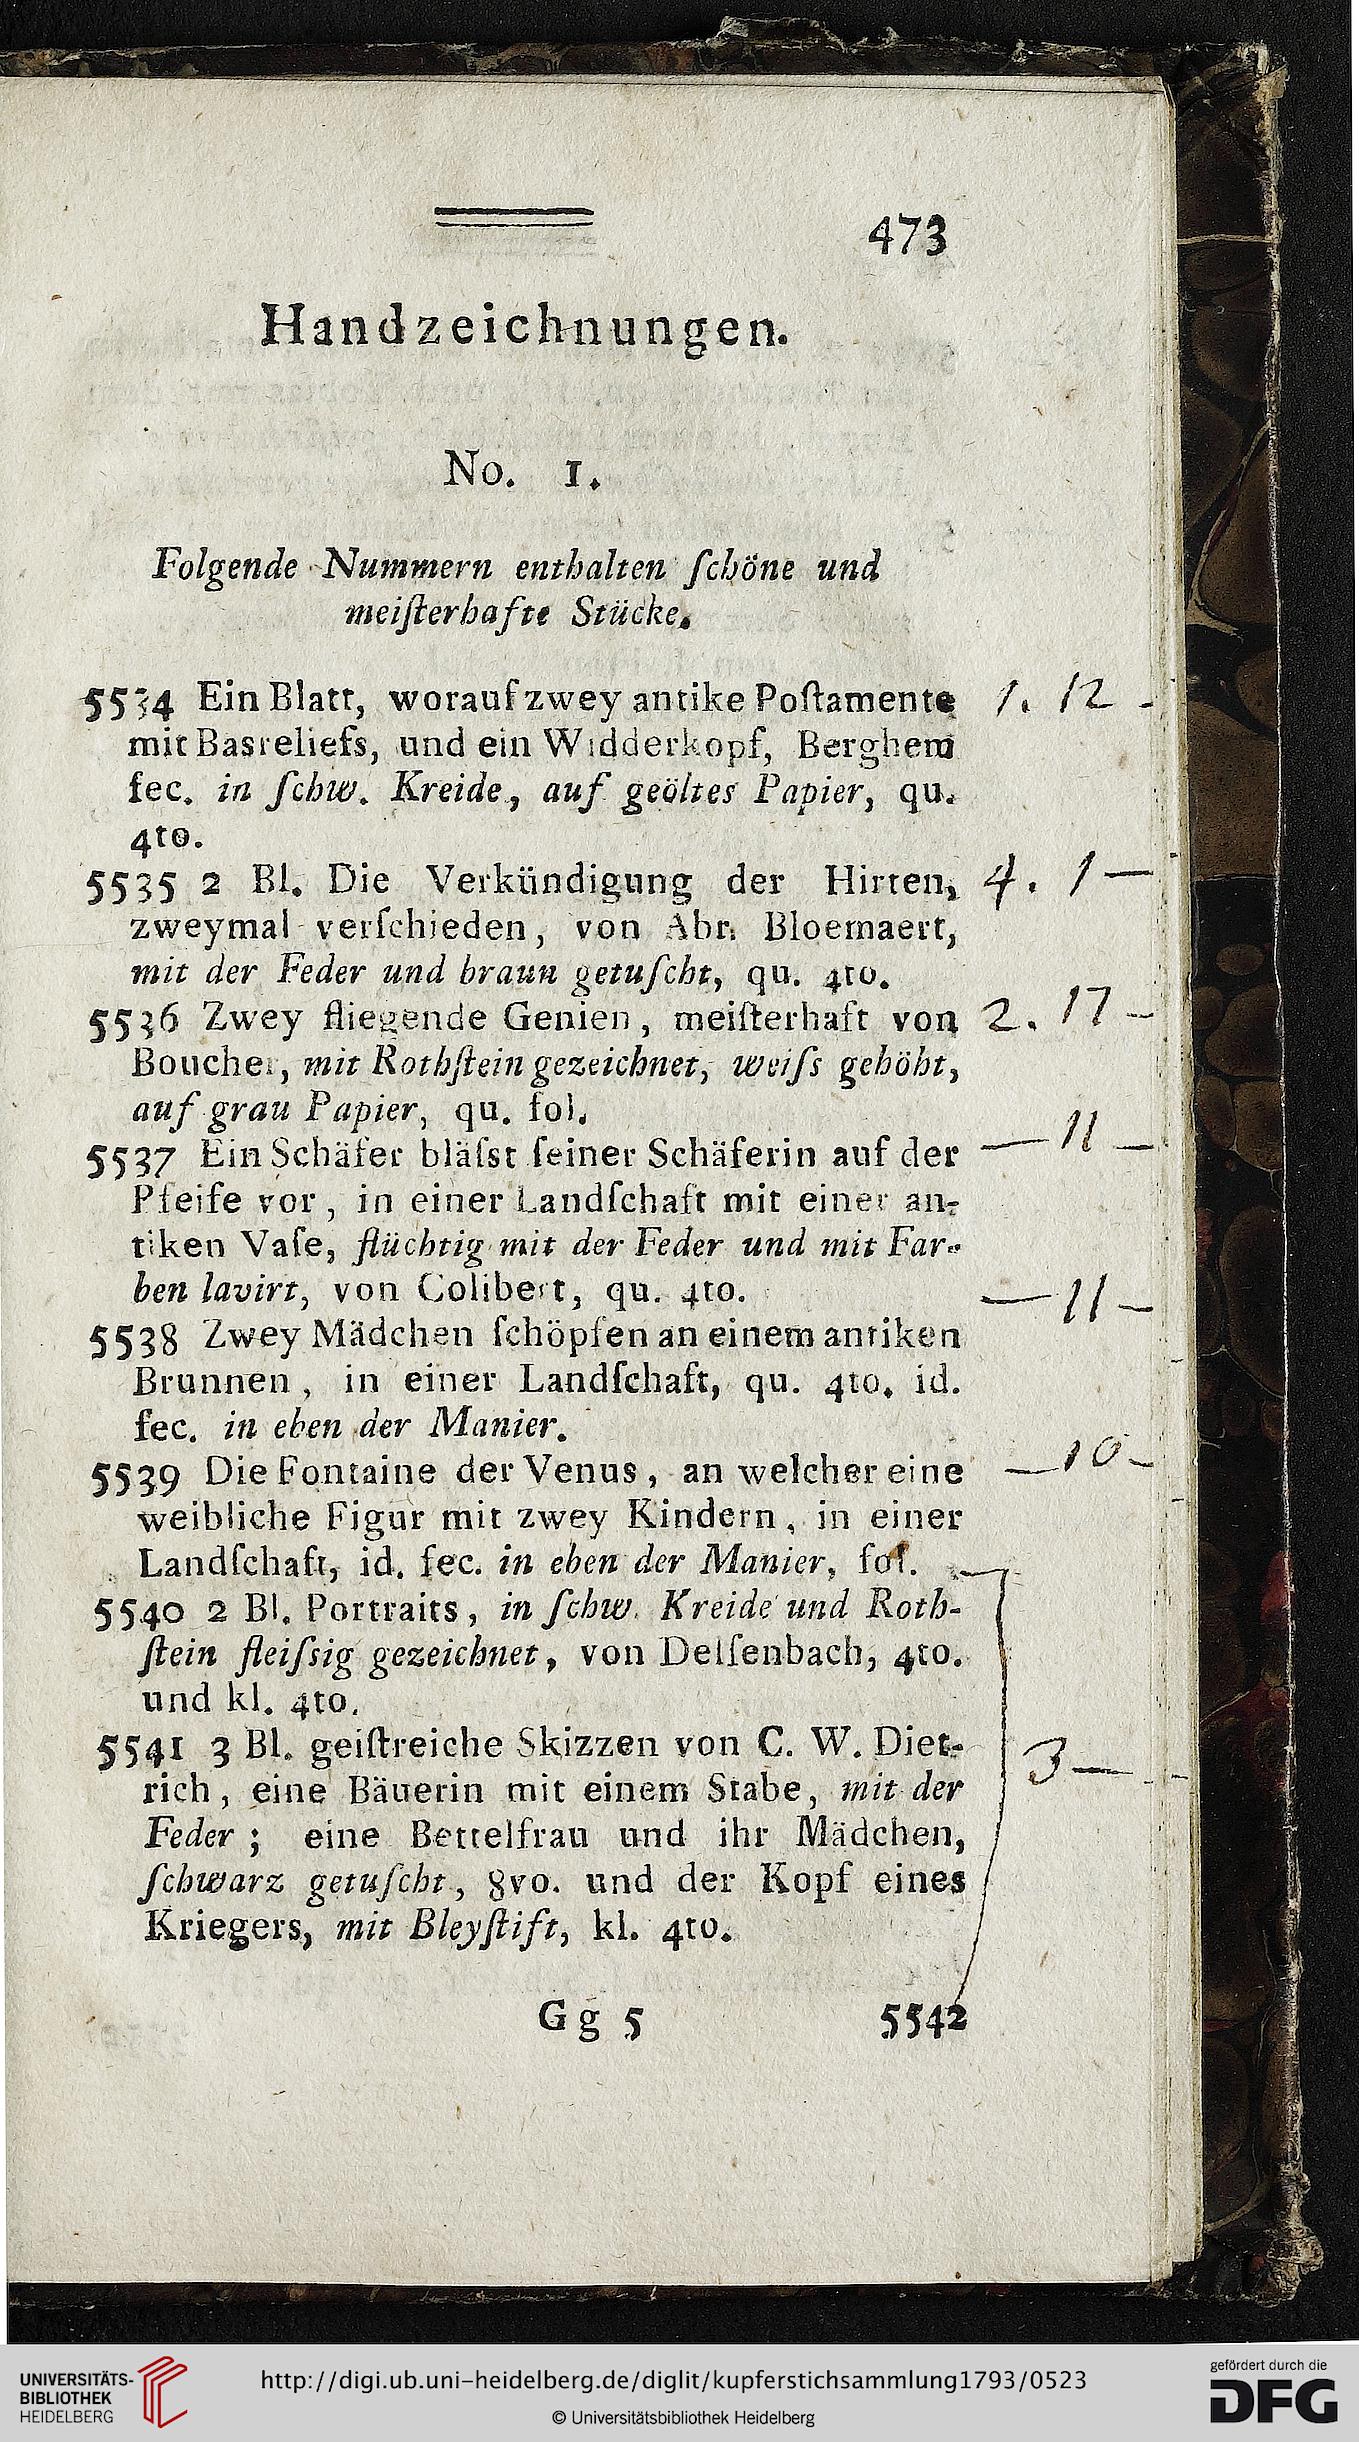 473
Handzeichnungen.
No. 1.
Folgende Nummern enthalten ſchöne und
meiſterhafte Stücke.
5534 Ein Blatt, worauf zwey antike Poſtamente 1. 12 -
mit Basreliefs, und ein Widderkopf, Berghem
fec. in ſchw. Kreide, auf geöltes Papier, qu.
4to.
5535 2 Bl. Die Verkündigung der Hirten, 4. 1 —
zweymal verſchieden, von Abr. Bloemaert,
mit der Feder und braun getuſcht, qu. 4to.
5536 Zwey fliegende Genien, meiſterhaft von 2. 17 -
Boucher, mit Rothſtein gezeichnet, weiſs gehöht,
auf grau Papier, qu. fol.
5537 Ein Schäfer bläſst ſeiner Schäferin auf der — 11 -
Pfeife vor, in einer Landſchaft mit einer an-
tiken Vaſe, flüchtig mit der Feder und mit Far-
ben lavirt, von Colibert, qu. 4to.
5538 Zwey Mädchen ſchöpfen an einem antiken — 11 -
Brunnen, in einer Landſchaft, qu. 4to. id.
fec. in eben der Manier.
5539 Die Fontaine der Venus, an welcher eine — 10 -
weibliche Figur mit zwey Kindern, in einer
Landſchaft, id. fec. in eben der Manier, fol.
5540 2 Bl. Portraits, in ſchw. Kreide und Roth-
ſtein fleiſsig gezeichnet, von Delſenbach, 4to.
und kl. 4to.
5541 3 Bl. geiſtreiche Skizzen von C. W. Diet- 3 —
rich, eine Bäuerin mit einem Stabe, mit der
Feder; eine Bettelfrau und ihr Mädchen,
ſchwarz getuſcht, 8vo. und der Kopf eines
Kriegers, mit Bleyſtift, kl. 4to.
Gg 5 5542
UNIVERSITÄTS-
BIBLIOTHEK
HEIDELBERG
http://digi.ub.uni-heidelberg.de/diglit/kupferstichsammlung1793/0523
© Universitätsbibliothek Heidelberg
gefördert durch die
DFG